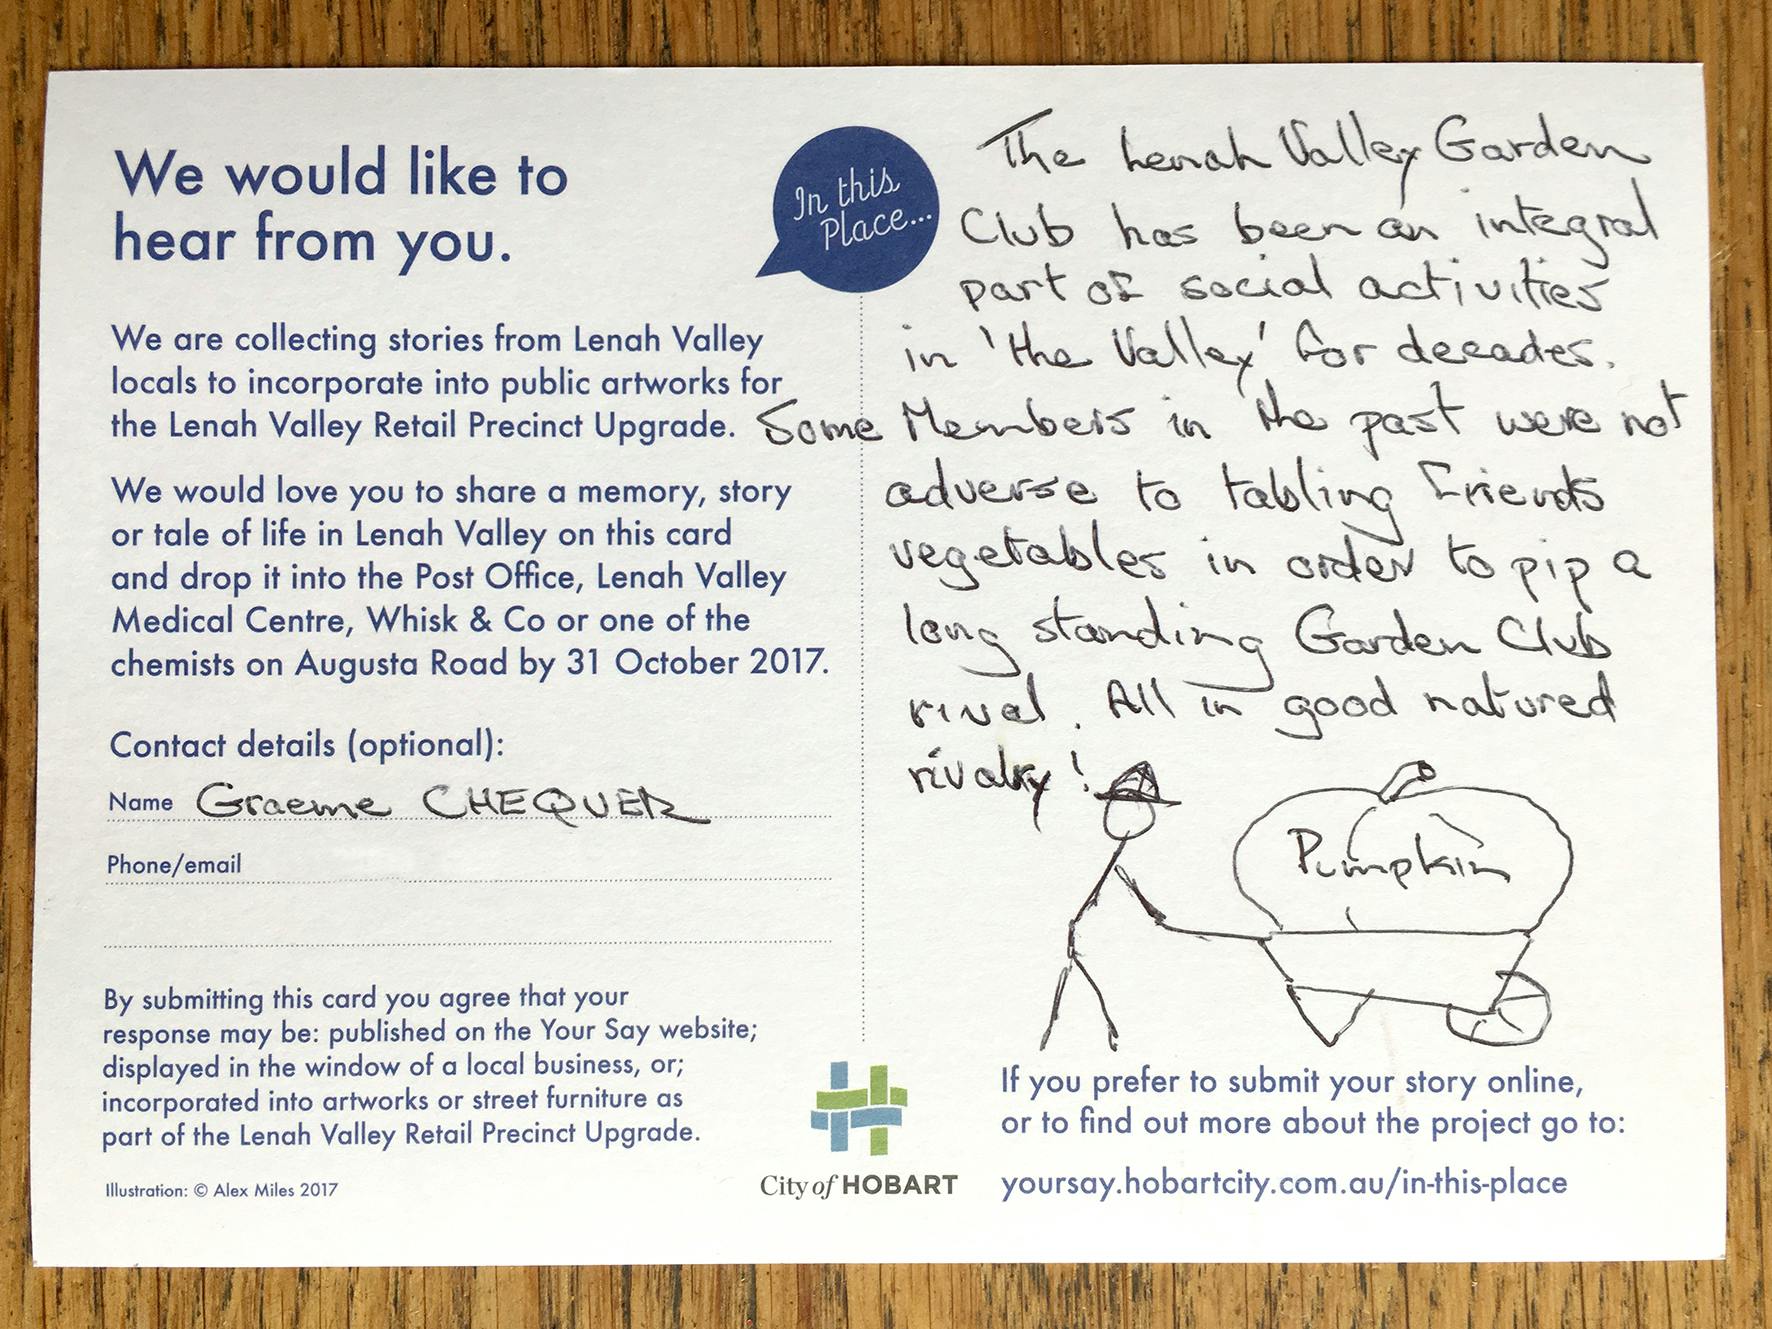 We would like to
hear from you.
In this
Place...
We are collecting stories from Lenah Valley
locals to incorporate into public artworks for
the Lenah Valley Retail Precinct Upgrade.
We would love you to share a memory, story
or tale of life in Lenah Valley on this card
and drop it into the Post Office, Lenah Valley
Medical Centre, Whisk & Co or one of the
chemists on Augusta Road by 31 October 2017.
Contact details (optional):
Name Graeme CHEQUER
Phone/email
By submitting this card you agree that your
response may be: published on the Your Say website;
displayed in the window of a local business, or;
incorporated into artworks or street furniture as
part of the Lenah Valley Retail Precinct Upgrade.
Illustration: © Alex Miles 2017
City of HOBART
The Lenah Valley Garden
Club has been an integral
part of social activities
in 'the Valley' for decades.
Some Members in the past were not
adverse to tabling Friends
vegetables in order to pip a
long standing Garden Club
rival. All in good natured
rivalry!
Pumpkin
If you prefer to submit your story online,
or to find out more about the project go to:
yoursay.hobartcity.com.au/in-this-place